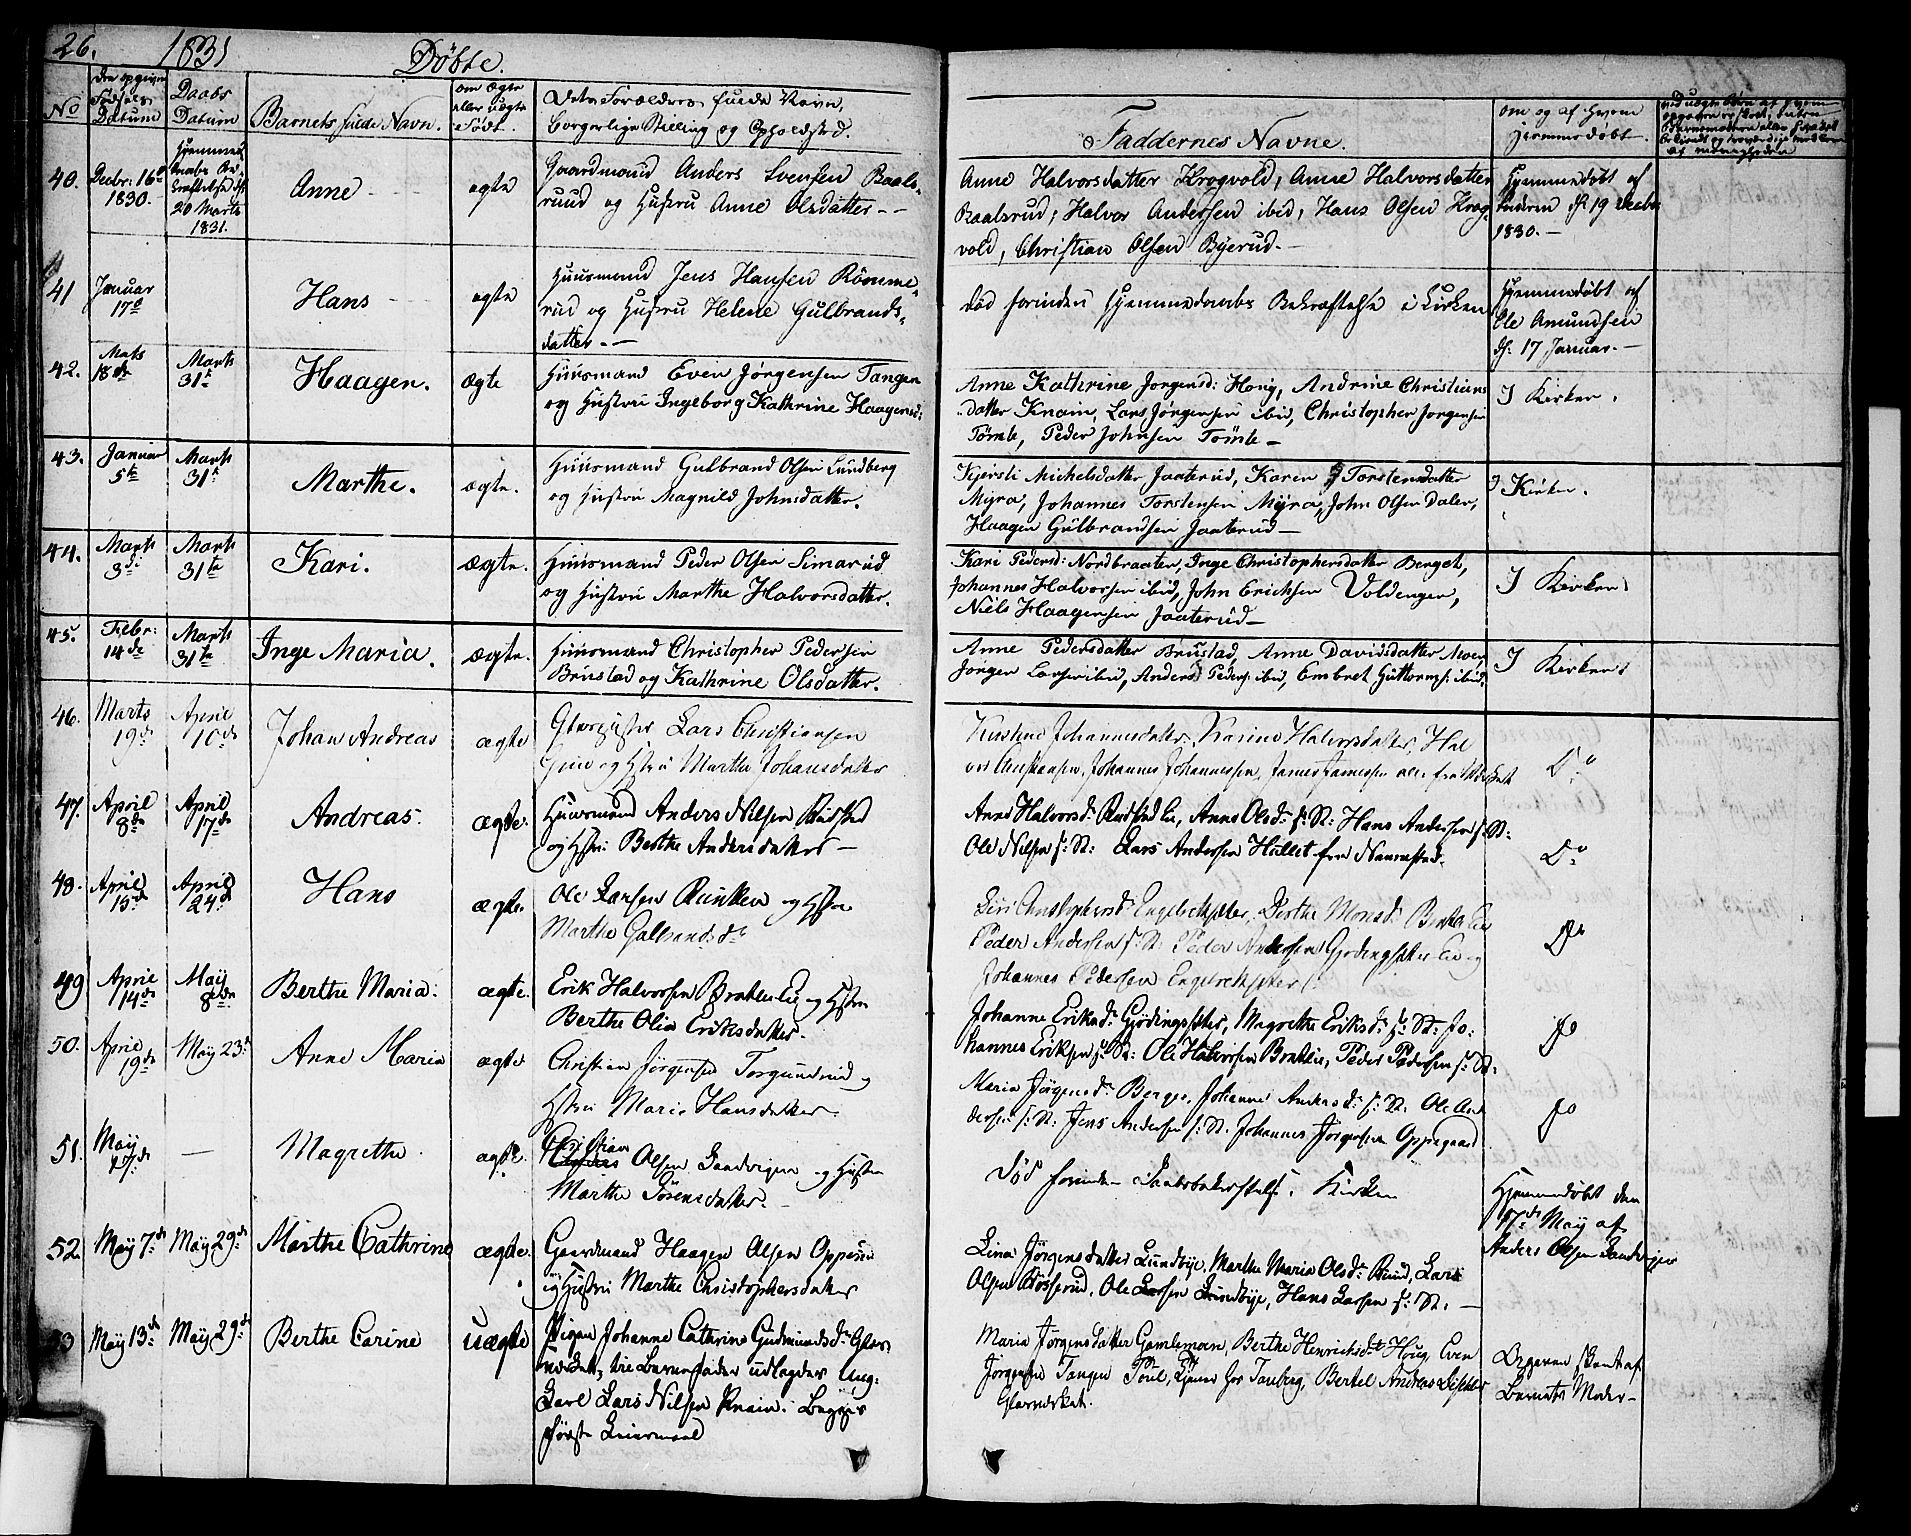 26. 1831 Døbte.
No
den opgivne Fødsels Datum
Daabs Datum
Barnets fulde Navn.
om Ægte eller uægte Født.
Dets Forældres fulde Navn, borgerlige Stilling og Opholdsted.
Faddernes Navne.
om og af hvem hjemmedøbt.
40. Decbr: 16de 1830.
Hjemmedaabs Bekræftelse d. 20 Marts 1831.
Anne
ægte
Gaardmand Anders Svensen Raals-
ruud og Hustru Anne Olsdatter
Anne Halvorsdatter Krogvold, Anne Halvorsdatter
Raalsrud, Halvor Andersen ibid, Hans Olsen Krog
vold, Christian Olsen Byerud.
Hjemmedøbt af
d. 19 Decbr
1830.
41 Januar 17de
Hans
ægte
Huusmand Jens Hansen Römme-
rud og Hustru Helene Gulbrands-
datter.
død forinden Hjemmedaabs Bekræftelse i Kirken
Hjemmedøbt af
Ole Amundsen
d. 17 Januar.
42. Mats 18de
Marts 31te
Haagen.
ægte
Huusmand Even Jörgensen Tangen
og Hustru Ingeborg Kathrine Haagensd:
Anne Kathrine Jorgensd: Houg, Andrine Christians
datter Knain, Lars Jörgensen ibid, Christopher Jorgensen
Tömte, Peder Johnsen Tömte
I Kirken.
43. Januar 5te
Marts 31te
Marthe.
ægte.
Huusmand Gulbrand Olsen Lundberg
og Hustru Magnild Johnsdatter.
Kjersti Michelsdatter Jaaterud, Karen Torstensdatter
Myra, Johannes Torstensen Myra, John Olsen Dalen,
Haagen Gulbrandsen Jaaterud
I Kirken.
44. Marts 3de
Marts 31te
Kari.
ægte.
Huusmand Peder Olsen Simarud
og Hustru Marthe Halvorsdatter.
Kari Pedersd: Nordbraaten, Inge Christophersdatter Berget,
Johannes Halvorsen ibid, John Erichsen Voldengen,
Niels Haagensen Jaaterud
I Kirken
45. Febr: 14de
Marts 31te
Inge Maria.
ægte.
Huusmand Christopher Pedersen
Brustad og Kathrine Olsdatter.
Anne Pedersdatter Brustad, Anne Davidsdatter Moen,
Jörgen Larsen ibid, Anders Peders: ibid, Embret Guttorms: ibid.
I Kirken
46. Marts 19de
April 10de
Johan Andreas
ægte
Lars Christiansen
og Hstru Marthe Johansdatter
Kirstine Johannesdatter, Karine Halvorsdatter, Hal
vor Christiansen, Johannes Johannessen, James Jamessen alle fra
Do
47. April 8de
April 17de
Andreas.
ægte.
Huusmand Anders Nilsen Rudsted
og Hstr: Berthe Andersdatter
Anne Halvorsdr Rudsted Eie, Anne Olsdr f: St: Hans Andersen f: St:
Ole Nilsen f: St: Lars Andersen Hullet fra Nannestad.
Do
48. April 15de
April 24de
Hans
ægte.
Ole Larsen Runken og Hstru
Marthe Gulbrandsdr
Siri Christophersdr Engebretsæter, Berthe Monsdr
Peder Andersen f: St: Peder Andersen Gjødingsæter Eie og
Johannes Pedersen Engebretsæter
Do
49 April 14de
May 8de
Berthe Maria.
ægte.
Erik Halvorsen Bratlie Eie og Hstru
Berthe Olia Eriksdatter.
Johanne Eriksdr Gjödingsæter, Magrethe Eriksdr f: St: Jo-
hannes Eriksen f: St: Ole Halvorsen Bratlie, Peder Pedersen f: St:
Do
50. April 19de
May 23de
Anne Maria
ægte
Christian Jörgensen Torgunrud og
Hstru Marie Hansdatter.
Maria Jörgensdr Berger, Johanne Andersdr f: St. Ole An
dersen f: St: Jens Andersen f: St. Johannes Jörgensen Oppegaard
Do
51. May 17de
Magrethe.
ægte.
Christian
Anders Olsen Sandvigen og Hstru
Marthe Sörensdatter.
Död forinden Daabsbekræftelse i Kirken
Hjemmedøbt den
17de May af
Anders Olsen Sandvigen
52. May 7de
May 29de
Marthe Cathrine
ægte.
Gaardmand Haagen Olsen Oppsund
og Hustru Marthe Christophersdatter
Lina Jörgensdatter Lundbye, Marthe Maria Olsdr Ruud, Lars
Olsen Bösserud, Ole Larsen Lundbye, Hans Larsen f: St.
53 May 13de
May 29de
Berthe Carine
uægte
Pigen Johanne Cathrine Gudmundsdr Glas-
værket, til Barnefader udlagdes Ung-
karl Lars Nilsen Knain. Begges
første Leiermaal
Maria Jörgensdatter Gamlemoen, Berthe Henriksdr Houg, Even
Jörgensen Tangen Poul, Tjener hos Tanberg, Bertel Andreas
Glasværket.
Opgaven skeet af
Barnets Moder